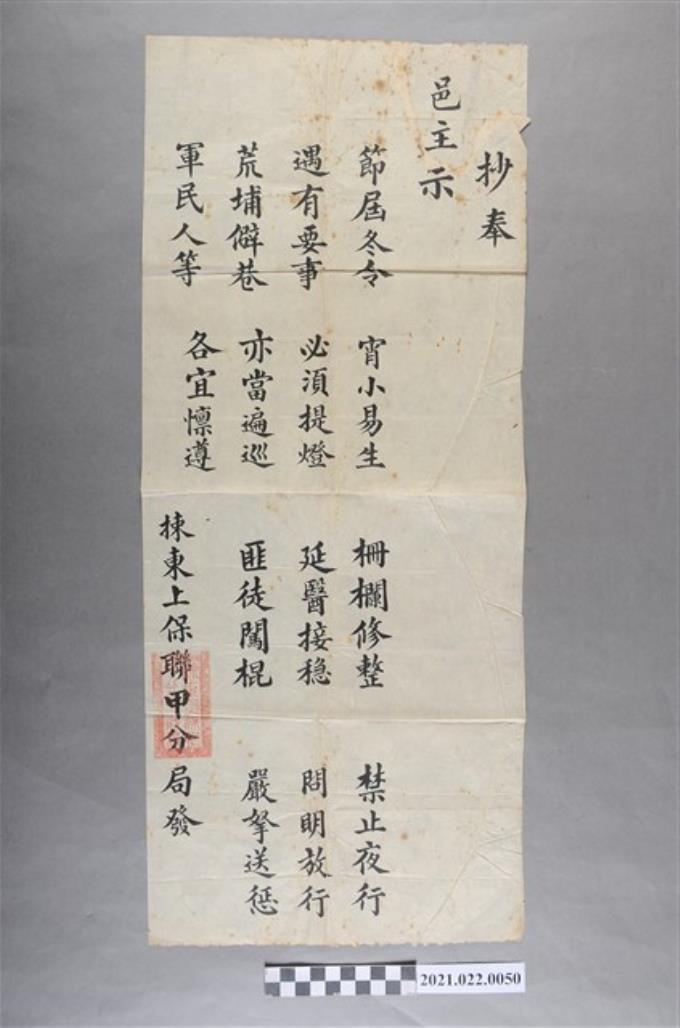 抄奉
邑主示
節屆冬令 宵小易生 柵欄修整 禁止夜行
遇有要事 必須提燈 延醫接穩 問明放行
荒埔僻巷 亦當遍巡 匪徒闖棍 嚴拏送惩
軍民人等 各宜懔遵
揀東上保聯甲分局發
2021.022.0050